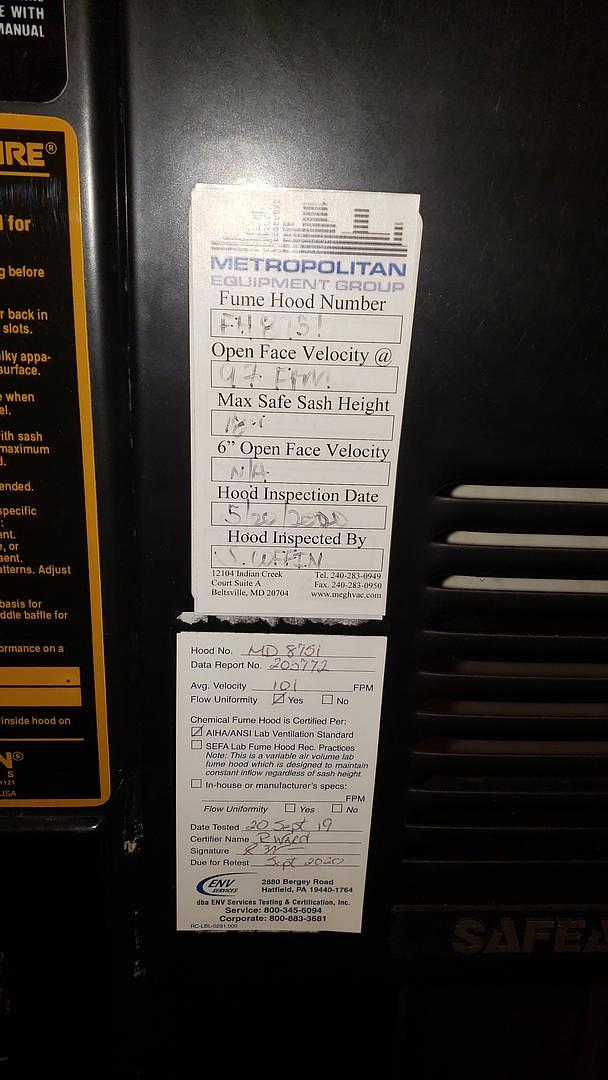 E WITH
MANUAL
IRE®
for
g before
r back in
slots.
lky appa-
surface.
when
el.
ith sash
maximum
d.
ended.
specific
:
ent.
e, or
sent.
atterns. Adjust
basis for
ddle baffle for
ormance on a
inside hood on
N®
S
1121
USA
METROPOLITAN
EQUIPMENT GROUP
Fume Hood Number
FH 8751
Open Face Velocity @
97 FPM
Max Safe Sash Height
18"
6” Open Face Velocity
N/A
Hood Inspection Date
5/20/2020
Hood Inspected By
12104 Indian Creek Tel. 240-283-0949
Court Suite A Fax. 240-283-0950
Beltsville, MD 20704 www.meghvac.com
Hood No. MD 8751
Data Report No. 203772
Avg. Velocity 101 FPM
Flow Uniformity Yes No
Chemical Fume Hood is Certified Per:
AIHA/ANSI Lab Ventilation Standard
SEFA Lab Fume Hood Rec. Practices
Note: This is a variable air volume lab
fume hood which is designed to maintain
constant inflow regardless of sash height.
In-house or manufacturer's specs:
FPM
Flow Uniformity Yes No
Date Tested 20 Sept 19
Certifier Name R WARD
Signature
Due for Retest Sept 2020
ENV SERVICES 2880 Bergey Road
Hatfield, PA 19440-1764
dba ENV Services Testing & Certification, Inc.
Service: 800-345-6094
Corporate: 800-883-3681
RC-LBL-0291.000
SAFEA